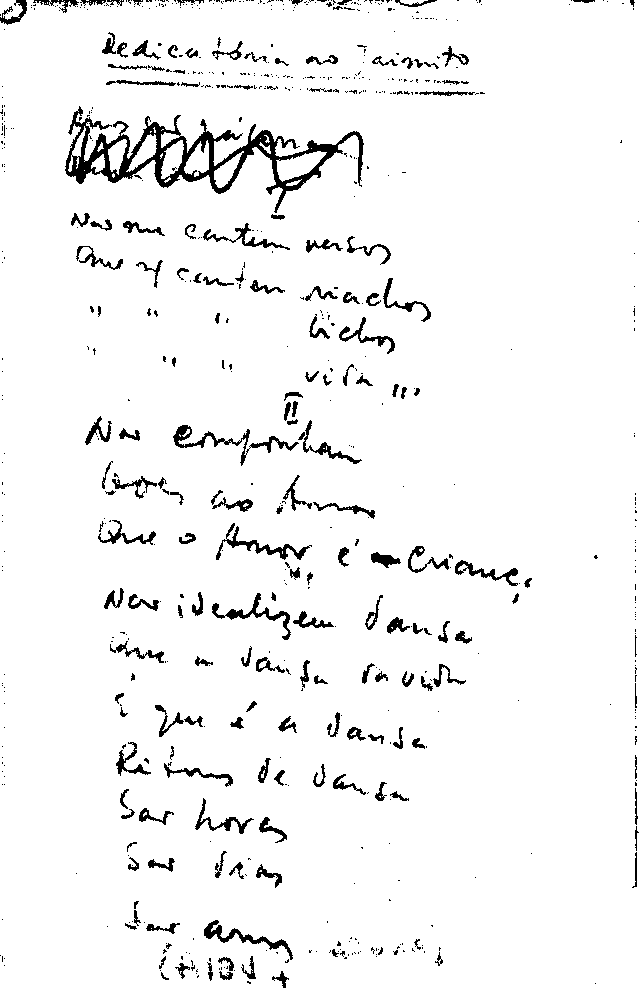 Dedicatória ao Jaimito
I
Não me cantem versos
Que me cantem riachos
" " " bichos
" " " vida ...
II
Não componham
ao Amor
Que o Amor é criança
Não idealizem dansa
Que a dansa da vida
É que é a dansa
Ritmos de dansa
São horas
São dias
São anos